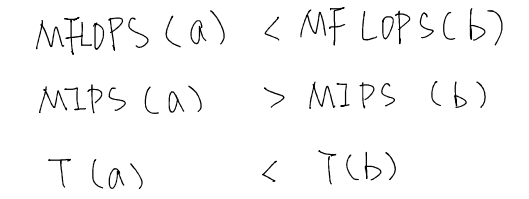 MFLOPS (a) < MFLOPS (b)
MIPS (a) > MIPS (b)
T (a) < T(b)